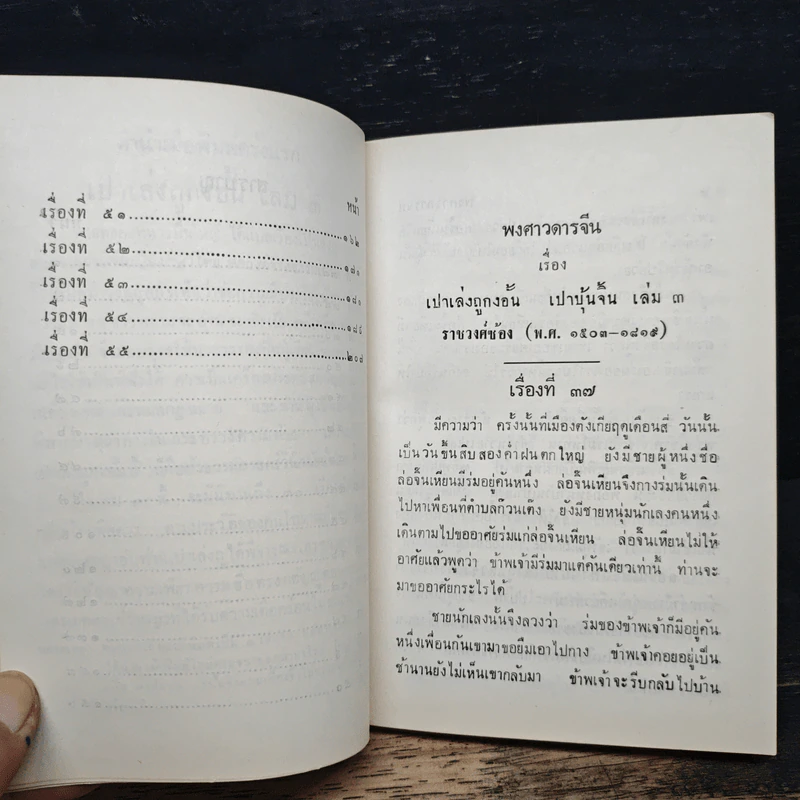 หน้า
เรื่องที่ ๕๑ ๑๖๒
เรื่องที่ ๕๒
เรื่องที่ ๕๓
เรื่องที่ ๕๔
เรื่องที่ ๕๕ ๒๐๗
พงศาวดารจีน
เรื่อง
เปาเล่งถูกงอั้น เปาบุ้นจิ้น เล่ม ๓
ราชวงศ์ซ้อง (พ.ศ. ๑๕๐๓—๑๘๑๙)
เรื่องที่ ๓๗
มีความว่า ครั้งนั้นที่เมืองตังเกียฤดูเดือนสี่ วันนั้น
เป็นวันขึ้นสิบสองค่ำฝนตกใหญ่ ยังมีชายผู้หนึ่งชื่อ
ล่อจิ๊นเหียนมีร่มอยู่คันหนึ่ง ล่อจิ๊นเหียนจึงกางร่มนั้นเดิน
ไปหาเพื่อนที่ตำบลก๊วนเต๊ง ยังมีชายหนุ่มนักเลงคนหนึ่ง
เดินตามไปขออาศัยร่มแก่ล่อจิ๊นเหียน ล่อจิ๊นเหียนไม่ให้
อาศัยแล้วพูดว่า ข้าพเจ้ามีร่มมาแต่คันเดียวเท่านี้ ท่านจะ
มาขออาศัยกระไรได้
ชายนักเลงนั้นจึงลวงว่า ร่มของข้าพเจ้าก็มีอยู่คัน
หนึ่งเพื่อนกันเขามาขอยืมเอาไปกาง ข้าพเจ้าคอยอยู่เป็น
ช้านานยังไม่เห็นเขากลับมา ข้าพเจ้าจะรีบกลับไปบ้าน